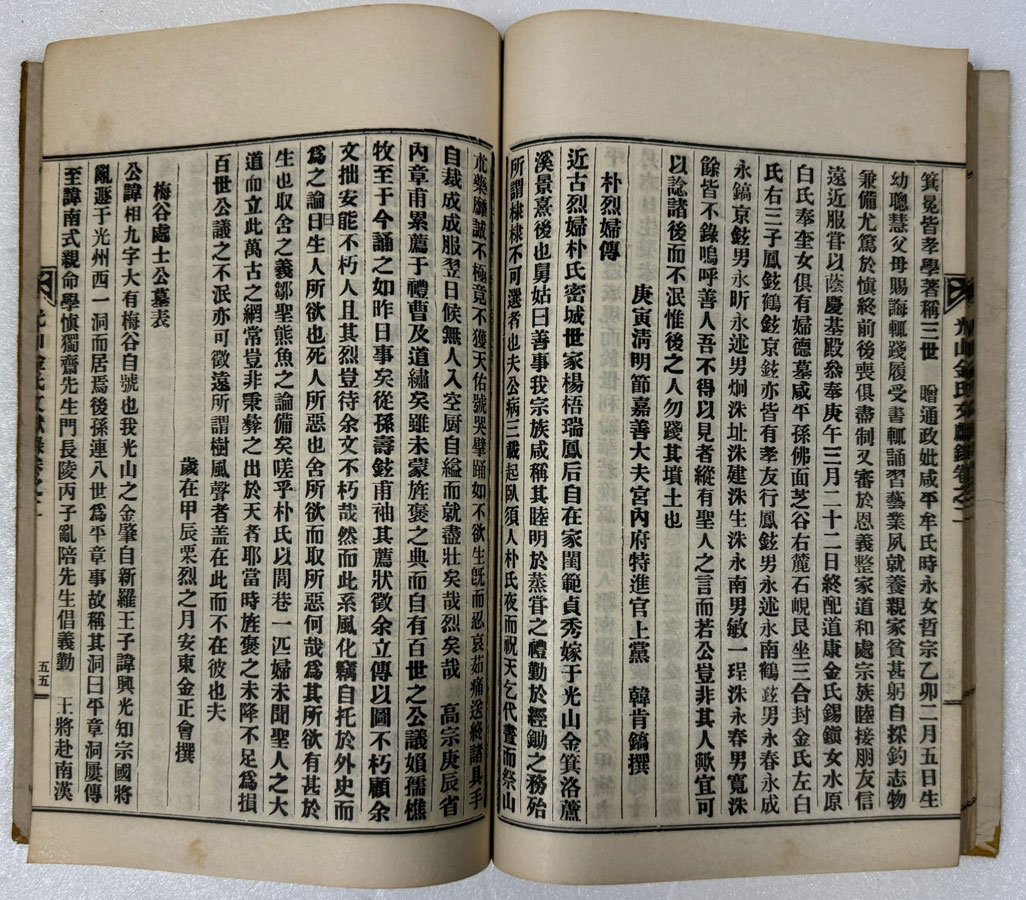 箕冕皆孝學著稱三世 贈通政妣咸平牟氏時永女哲宗乙卯二月五日生
幼聰慧父母賜誨輒踐履受書輒誦習藝業夙就養親家貧甚躬自採釣志物
兼備尤篤於愼終前後喪俱盡制又審於恩義整家道和處宗族睦接朋友信
遠近服嘗以蔭慶基殿叅奉庚午三月二十二日終配道康金氏錫鎭女水原
白氏奉奎女俱有婦德墓咸平孫佛面芝谷右麓石峴艮坐三合封金氏左白
氏右三子鳳鉉鶴鉉京鉉亦皆有孝友行鳳鉉男永述永南鶴鉉男永春永成
永鎬京鉉男永昕永述男炯洙址洙建洙生洙永南男敏一珵洙永春男寬洙
餘皆不錄嗚呼善人吾不得以見者縱有聖人之言而若公豈非其人歟宜可
以諗諸後而不泯惟後之人勿踐其墳土也
庚寅淸明節嘉善大夫宮內府特進官上黨 韓肯鎬撰
朴烈婦傳
近古烈婦朴氏密城世家楊梧瑞鳳后自在家閨範貞秀嫁于光山金箕洛蘆
溪景熹後也舅姑曰善事我宗族咸稱其睦明於蒸甞之禮勤於經鋤之務殆
所謂棣棣不可選者也夫公病三載起臥須人朴氏夜而祝天乞代晝而祭山
朮藥靡誠不極竟不獲天佑號哭擘踊如不欲生旣而忍哀茹痛送終諸具手
自裁成成服翌日候無人入空厨自縊而就盡壯矣哉烈矣哉 高宗庚辰省
內章甫累薦于禮曹及道繡矣雖未蒙旌褒之典而自有百世之公議嬪孺樵
牧至于今誦之如昨日事矣從孫壽鉉甫袖其薦狀徵余立傳以圖不朽顧余
文拙安能不朽人且其烈豈待余文不朽哉然而此系風化竊自托於外史而
爲之論曰生人所欲也死人所惡也舍所欲而取所惡何哉爲其所欲有甚於
生也取舍之義鄒聖熊魚之論備矣嗟乎朴氏以閭巷一匹婦未聞聖人之大
道而立此萬古之網常豈非秉彛之出於天者耶當時旌褒之未降不足爲損
百世公議之不泯亦可徵遠所謂樹風聲者盖在此而不在彼也夫
歲在甲辰栗烈之月安東金正會撰
梅谷處士公墓表
公諱相九字大有梅谷自號也我光山之金肇自新羅王子諱興光知宗國將
亂遯于光州西一洞而居焉後孫連八世爲平章事故稱其洞曰平章洞屢傳
至諱南式親命學愼獨齋先生門長陵丙子亂陪先生倡義勤 王將赴南漢
光山金氏文獻錄卷之二
五五